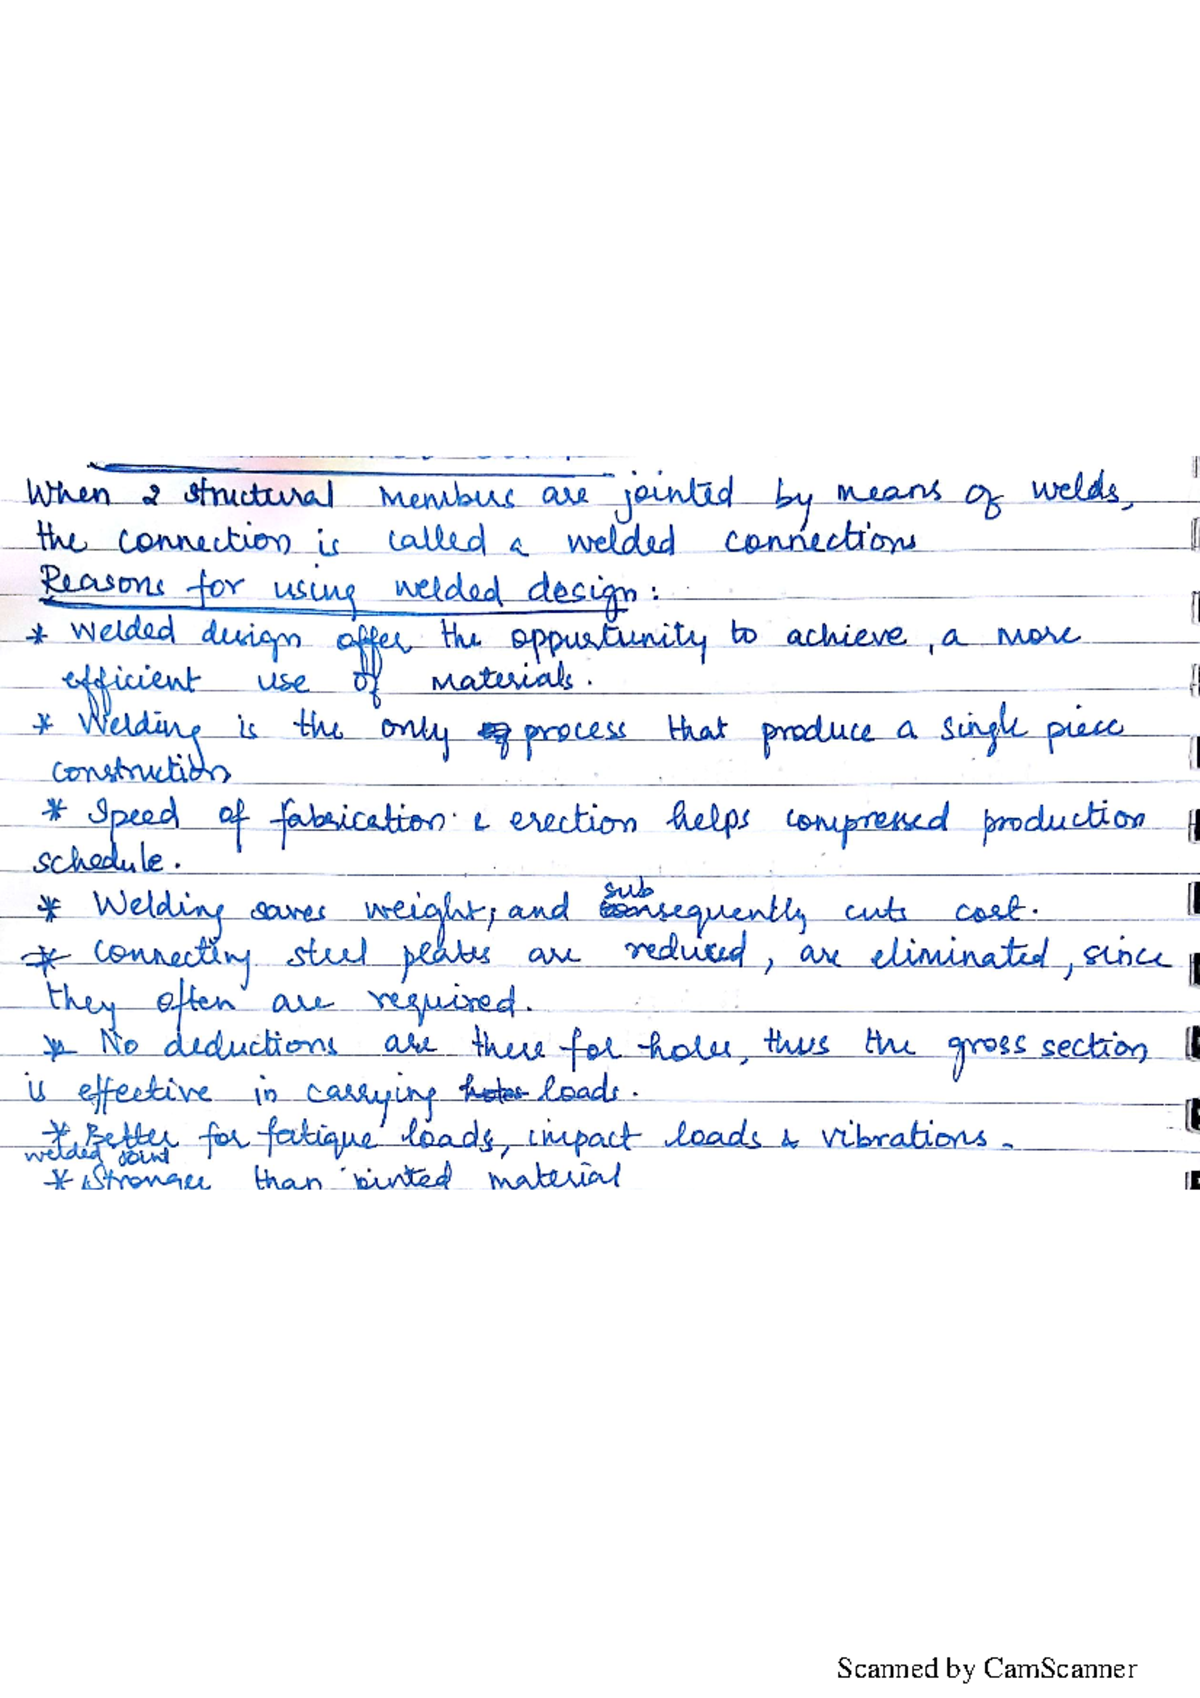 When 2 structural members are jointed by means of welds,
the connection is called a welded connections
Reasons for using welded design:
* Welded design offer the oppurtunity to achieve, a more
efficient use of materials.
* Welding is the only process that produce a single piece
construction
* Speed of fabrication & erection helps compressed production
schedule.
* Welding saves weight, and subsequently cuts cost.
* Connecting steel plates are reduced, are eliminated, since
they often are required.
* No deductions are there for holes, thus the gross section
is effective in carrying loads.
* Better for fatique loads, impact loads & vibrations.
welded joint
* Stronger than material
Scanned by CamScanner